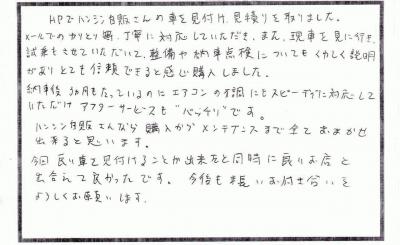 HPでハンシン自販さんの車を見付け、見積りを取りました。
メールでのやりとり等、丁寧に対応していただき、また、現車を見に行き、
試乗もさせていただいて、整備や納車点検についてもくわしく説明
があり とても信頼できると感じ購入しました。
納車後3ヵ月もたっているのに エアコンの不調にもスピーディに対応して
いただけ アフターサービスも"バッチリ"です。
ハンシン自販さんなら 購入からメンテナンスまで全ておまかせ
出来ると思います。
今回 良い車を見付けることが出来たと同時に良いお店と
出合えて良かったです。 今後も末長いお付き合いを
よろしくお願いします。